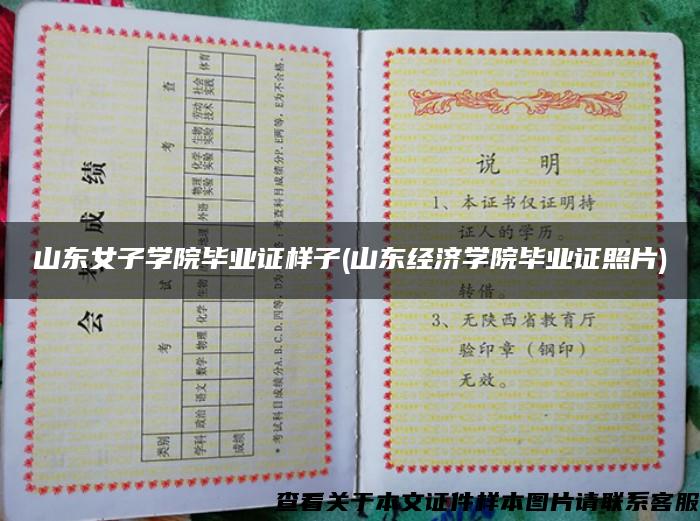 会考成绩
类别 考试 考查
学科 政治 语文 数学 物理 化学 生物 地理 外语 物理实验 化学实验 生物实验 劳动技术 社会实践 体育
成绩
*考试科目成绩分A.B.C.D.四等，D为 ；考查科目成绩分P.E两等，E为不合格。
说 明
1、本证书仅证明持
证人的学历。
山东女子学院毕业证样子(山东经济学院毕业证照片)
转借。
3、无陕西省教育厅
验印章（钢印）
无效。
查看关于本文证件样本图片请联系客服